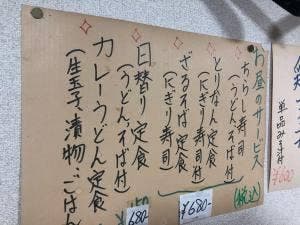 お昼のサービス
ちらし寿司
(うどん、そば付)
とりなん定食
(にぎり寿司付)
ざるそば定食
(にぎり寿司)
日替り定食
(うどん、そば付)
カレーうどん定食
(生玉子、漬物、ごはん
(税込)
¥680-
680-
単品
¥600